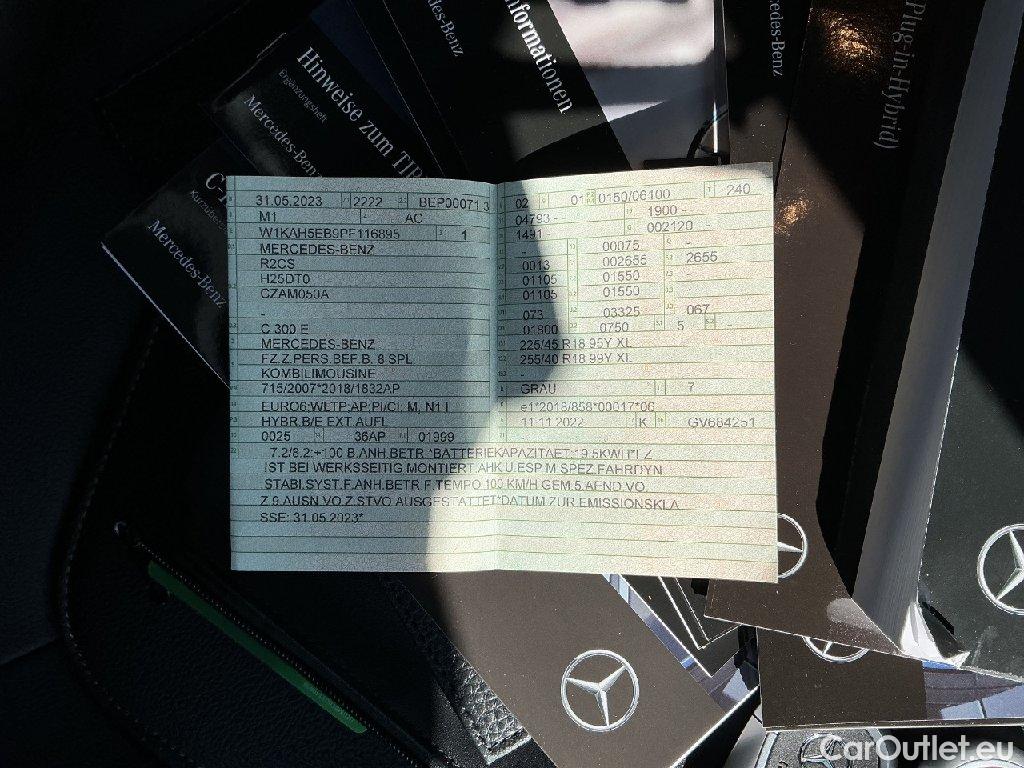 Mercedes-Benz
Informationen
Mercedes-Benz
Plug-in-Hybrid)
Hinweise zum
Ergänzungsheft
Mercedes-Benz
Mercedes-Benz
31.05.2023 2222
M1 AC
1
MERCEDES-BENZ
R2CS
H25DT0
CZAM050A
-
C 300 E
MERCEDES-BENZ
FZ.Z.PERS.BEF.B. 8 SPL
KOMBILIMOUSINE
715/2007*2018/1832AP
HYBR.B/E EXT.AUFL
0025 36AP 01999
IST BEI WERKSSEITIG MONTIERT.AHK U.ESP M.SPEZ.FAHRDYN.
STABI.SYST.F.ANH.BETR.F.TEMPO 100 KM/H GEM.5.AEND.VO.
Z.9.AUSN.VO.Z.STVO AUSGESTATTET*DATUM ZUR EMISSIONSKLA
SSE: 31.05.2023*
02 01 0150/06100 240
04793 - 1900 -
1491 - 002120 -
- 00075 -
0013 002655 2655
01105 01550 -
01105 01550
073 03325 067
01800 0750 5 -
225/45 R18 95Y XL
255/40 R18 99Y XL
-
GRAU 7
e1*2018/858*00017*06
11.11.2022 K
CarOutlet.eu